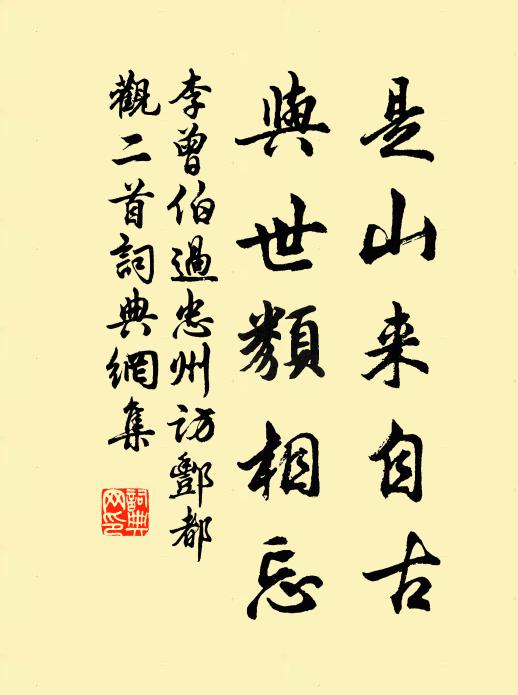 是山来自古
與世類相忘
李曾伯過忠州訪酆都
觀二首詞典網集
詞典
网印